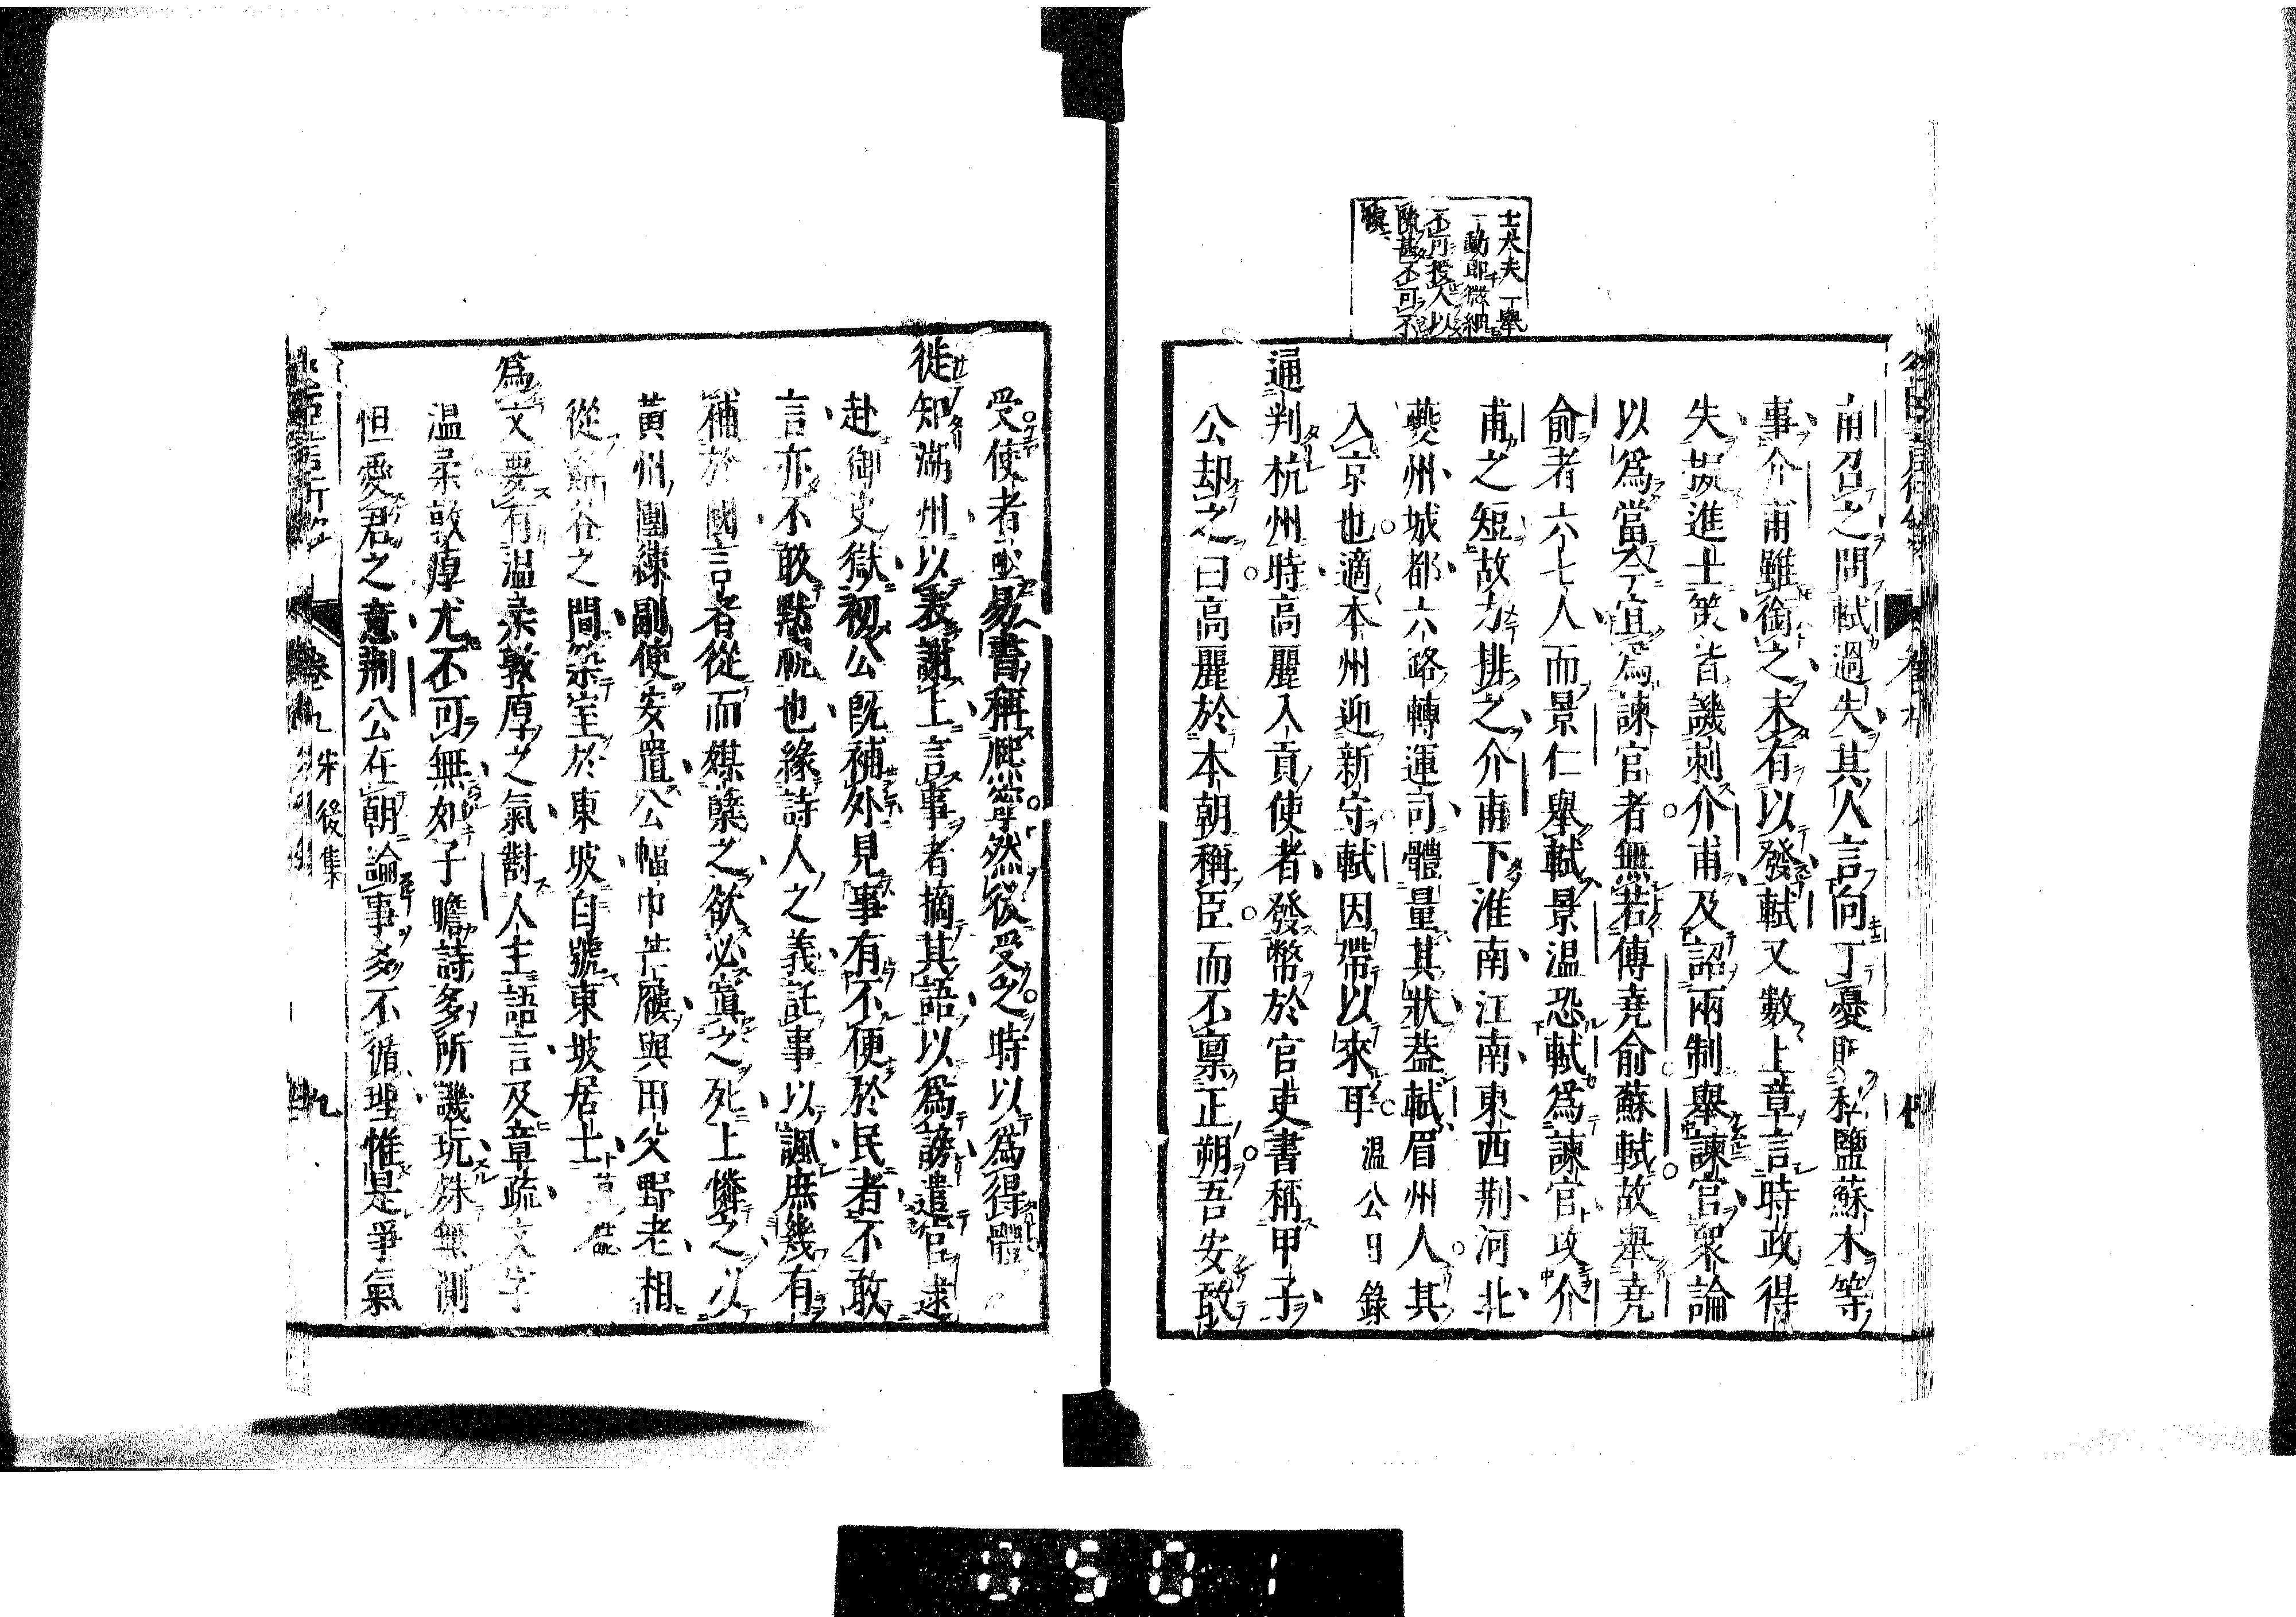 士大夫一舉
一動即微細
不可授人以
隙甚不可不
愼
甫召之問軾過失其人言向丁憂販私鹽蘇木等
事介甫雖銜之未有以發軾又數上章言時政得
失擬進士策皆譏刺介甫及詔兩制舉諫官衆論
以爲當今宜爲諫官者無若傅堯俞蘇軾故舉堯
俞者六七人而景仁舉軾景温恐軾爲諫官攻介
甫之短故力排之介甫下淮南江南東西荆河北
夔州城都六路轉運司體量其狀葢軾眉州人其
入京也適本州迎新守軾因帶以來耳 温公日錄
通判杭州時高麗入貢使者發幣於官吏書稱甲子
公却之曰高麗於本朝稱臣而不禀正朔吾安敢
受使者亟易書稱熈寧然後受之時以爲得體
徙知湖州以表謝上言事者摘其語以爲謗遣官逮
赴御史獄初公旣補外見事有不便於民者不敢
言亦不敢黙視也緣詩人之義託事以諷庶幾有
補於國言者從而媒蘖之欲必寘之死上憐之以
黃州團練副使安置公幅巾芒屩與田父野老相
從谿谷之間築室於東坡自號東坡居士 墓誌
爲文要有温柔敦厚之氣對人主語言及章疏文字
温柔敦厚尤不可無如子瞻詩多所譏玩殊無惻
怛愛君之意荆公在朝論事多不循理惟是爭氣
卷九 朱後集